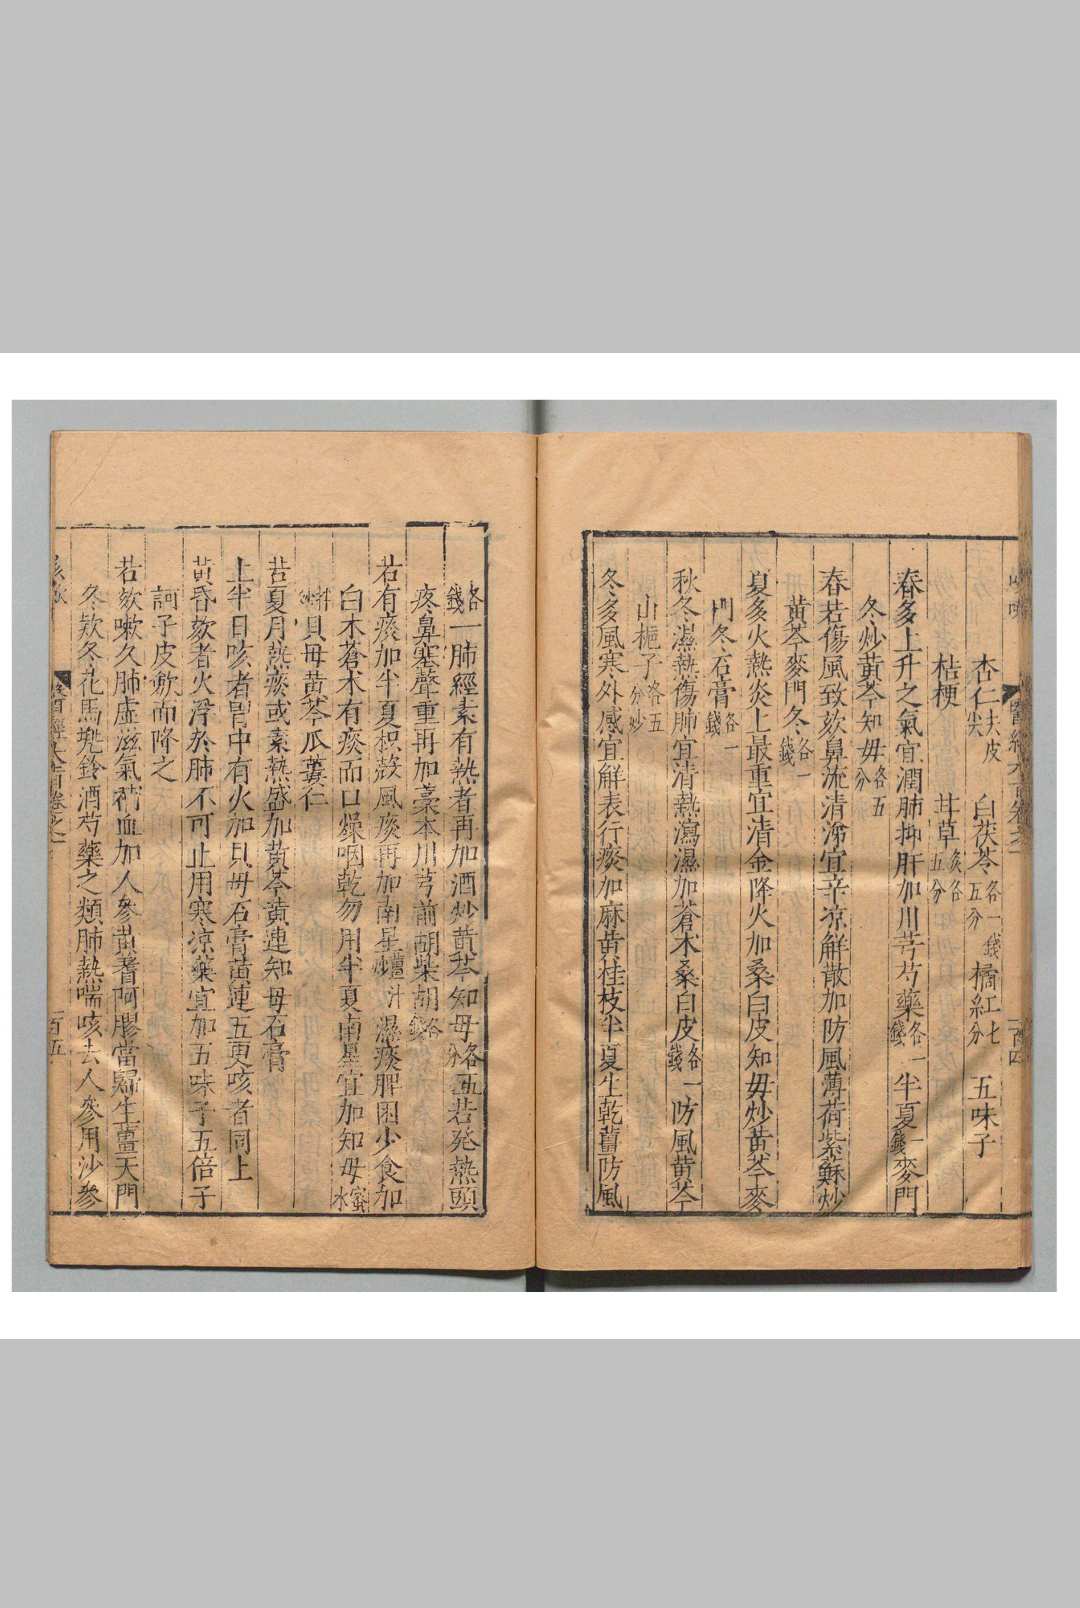 杏仁去皮尖 白茯苓各一錢五分 橘紅七分 五味子
桔梗 甘草炙各五分
春多上升之氣宜潤肺抑肝加川芎芍藥各一錢 半夏一錢麥門
冬炒黃芩知母各五分
春若傷風致欬鼻流清涕宜辛凉解散加防風薄荷紫蘇炒
黃芩麥門冬各一錢
夏多火熱炎上最重宜清金降火加桑白皮知母炒黃芩麥
門冬石膏各一錢
秋多濕熱傷肺宜清熱瀉濕加蒼木桑白皮各一錢防風黃芩
山梔子各五分炒
冬多風寒外感宜解表行痰加麻黃桂枝半夏生乾薑防風
各一錢肺經素有熱者再加酒炒黃芩知母各五分若発熱頭
疼鼻塞聲重再加藁本川芎前胡柴胡各錢
若有痰加半夏枳殼風痰再加南星薑汁炒濕痰脾困少食加
白木蒼木有痰而口燥咽乾勿用半夏南星宜加知母蜜水
拌炒貝母黃芩瓜蔞仁
若夏月熱痰或素熱盛加黃芩黃連知母石膏
上半日咳者胃中有火加貝母石膏黃連五更咳者同上
黃昏欬者火浮於肺不可止用寒凉藥宜加五味子五倍子
訶子皮歛而降之
若欬嗽久肺虛滋氣補血加人參黃蓍阿膠當歸生薑天門
冬欵冬花馬兠鈴酒芍藥之類肺熱喘咳去人參用沙參
醫經大旨卷之一
一百五